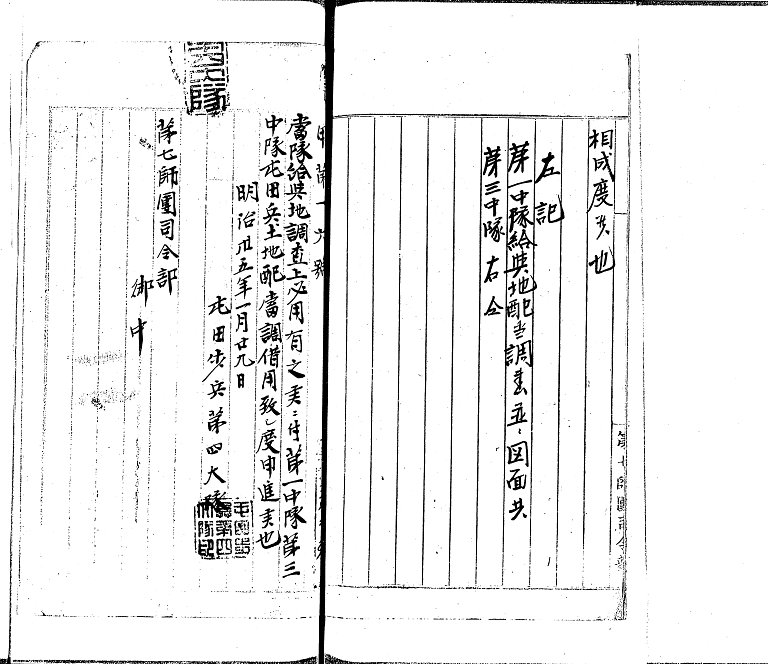 相成度候也
左記
第一中隊給与地配当調書並ニ図面共
第三中隊 右仝
第七師團司令部
甲第一六號
當隊給与地調査上必用有之候ニ付第一中隊第三
中隊屯田兵土地配當調借用致シ度申進候也
明治卅五年一月廿九日
屯田歩兵第四大隊
第七師團司令部
御中